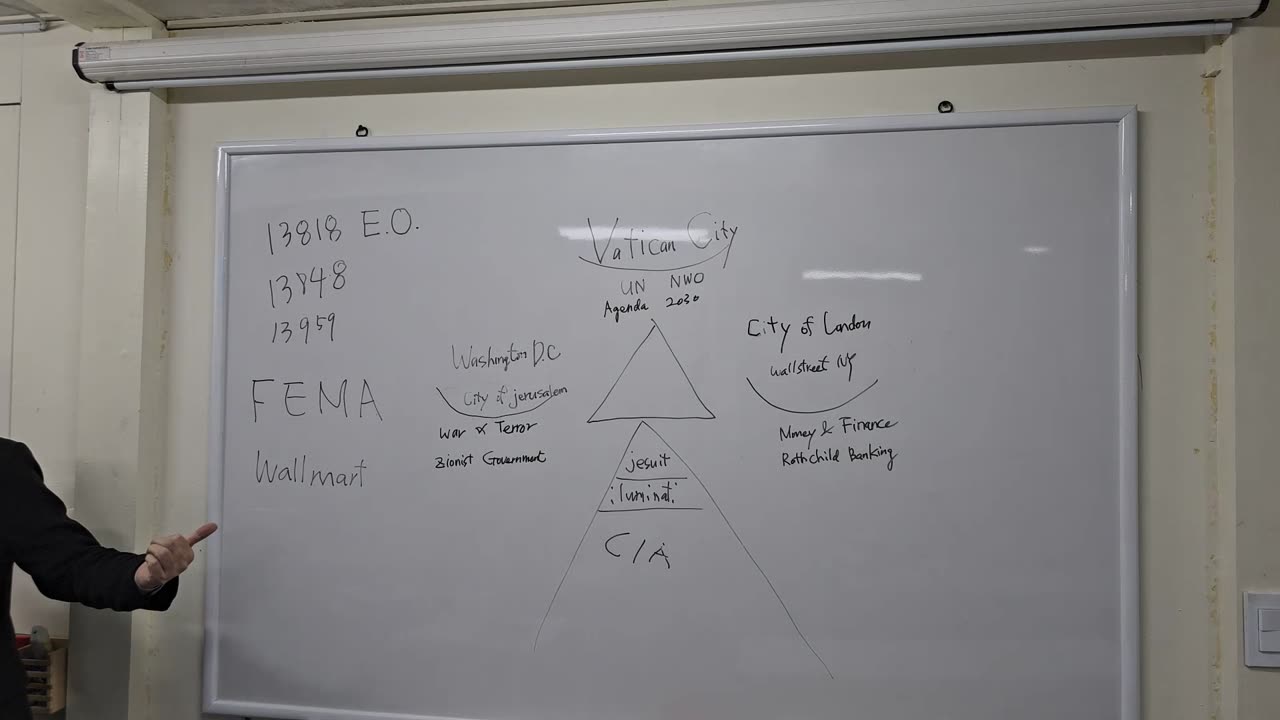 13818 E.O.
13848
13959
FEMA
Wallmart
Vatican City
UN NWO
Agenda 2030
Washington D.C
City of jerusalem
War & Terror
Zionist Government
City of London
Wallstreet NY
Money & Finance
Rothchild Banking
jesuit
iluminati
CIA